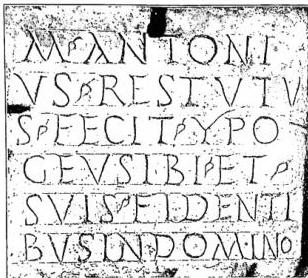 M·ANTONI
VS·RESTVTV
S·FECIT·YPO
GEVSIBI·ET·
SVIS·FIDENTI
BVS·IN·DOMINO